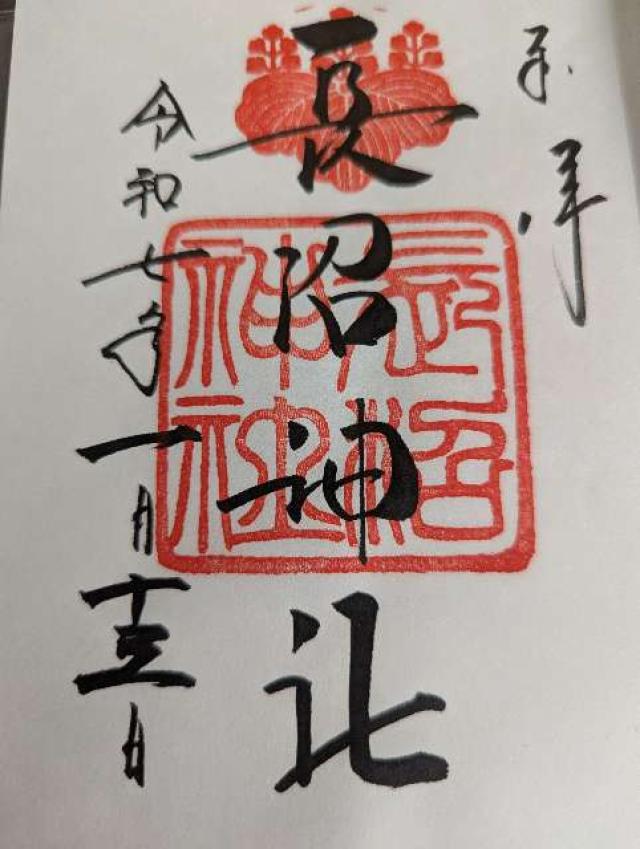 奉拝
長沼神社
令和七年一月十五日
長沼
神社